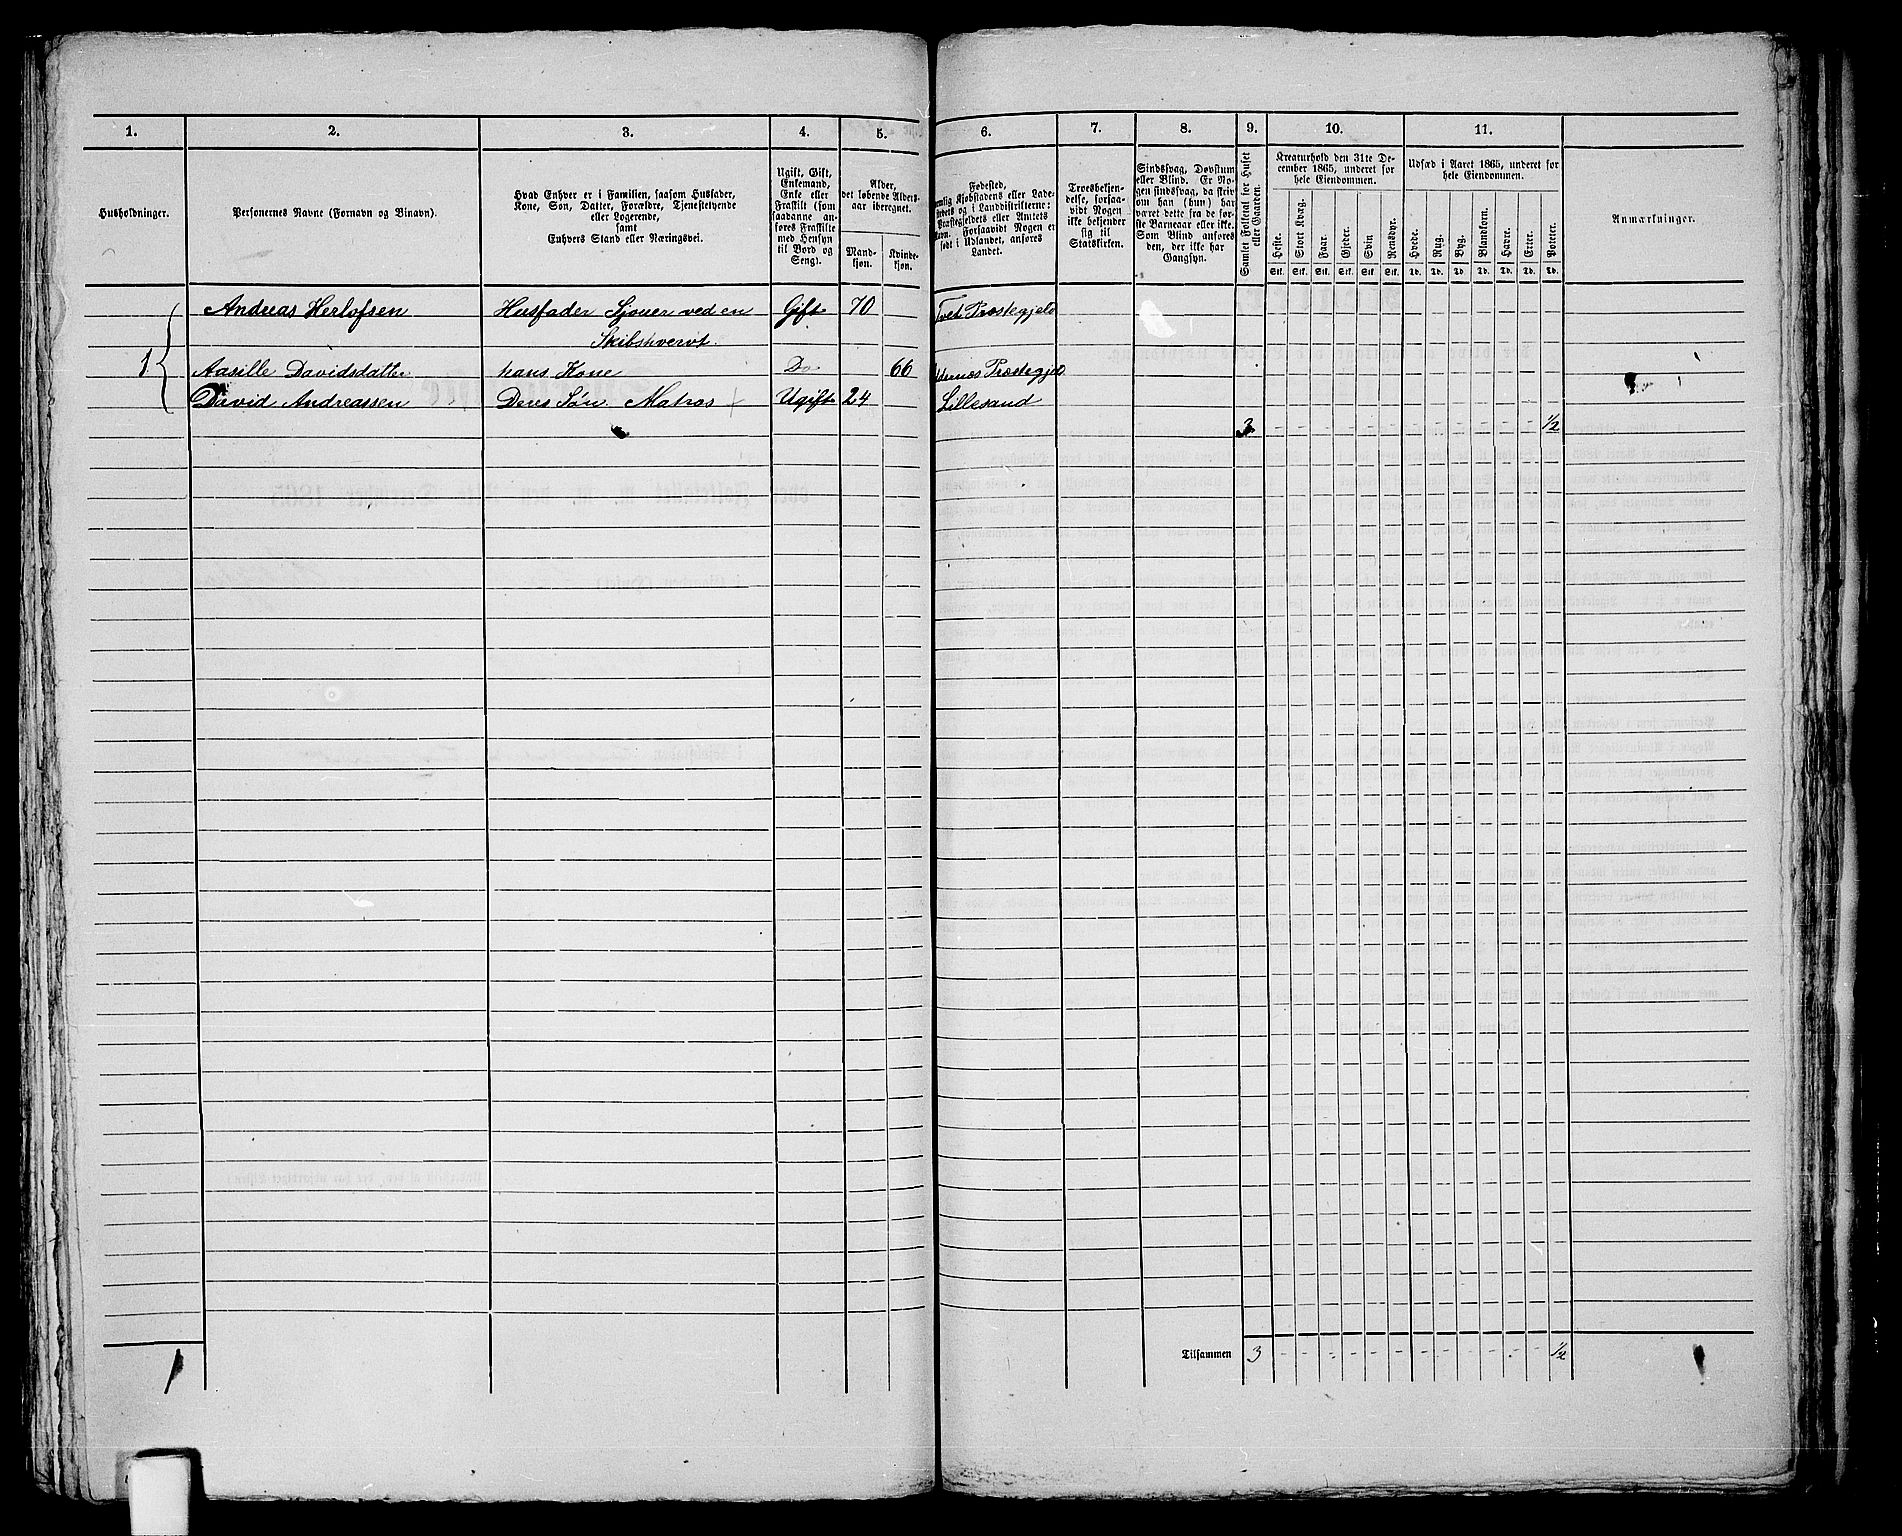 1. 2. 3. 4. 5. 6. 7. 8. 9. 10. 11.
Husholdninger.
Personernes Navne (Fornavn og Binavn).
Hvad Enhver er i Familien, saasom Husfader,
Kone, Søn, Datter, Forældre, Tjenestetyende
eller Logerende,
samt
Enhvers Stand eller Næringsvei.
Ugift, Gift,
Enkemand,
Enke eller
Fraskilt (som
saadanne an-
føres Fraskilte
med Hensyn
til Bord og
Seng).
Alder,
det løbende Alders-
aar iberegnet.
Mand-
kjøn.
Kvinde-
kjøn.
Fødested,
Kjøbstadens eller Lade-
eller Amtets
Forsaavidt Nogen er
født i Udlandet, anføres
Landet.
Troesbekjen-
delse, forsaa-
vidt Nogen
ikke bekjender
sig til
Statskirken.
Sindssvag, Døvstum
eller Blind. Er No-
gen sindssvag, da skriv
om han (hun) har
været dette fra de for-
ste Barneaar eller ikke.
Som Blind anføres
den, der ikke har
Gangsyn.
Samlet Folketal for Huset
eller Gaarden.
Kreaturhold den 31te De-
cember 1865, underet for
hele Eiendommen.
Heste. Stort Kvæg. Faar. Gjeder. Svin. Rensdyr.
Stk. Stk. Stk. Stk. Stk. Stk.
Udsæd i Aaret 1865, underet for
hele Eiendommen.
Hvede. Rug. Byg. Blandkorn. Havre. Erter. Poteter.
Td. Td. Td. Td. Td. Td. Td.
Anmærkninger.
Andreas Herlofsen Husfader Sjouer ved en Gift 70 Tvet Præstegjeld
Skibshverft.
1 Aasille Davidsdatter hans Kone Do 66 Præstegjeld
David Andreassen Deres Søn. Matros Ugift 24 Lillesand
3 - - - - - - - - - - - - 1/2
Tilsammen 3 - - - - - - - - - - - - 1/2
1